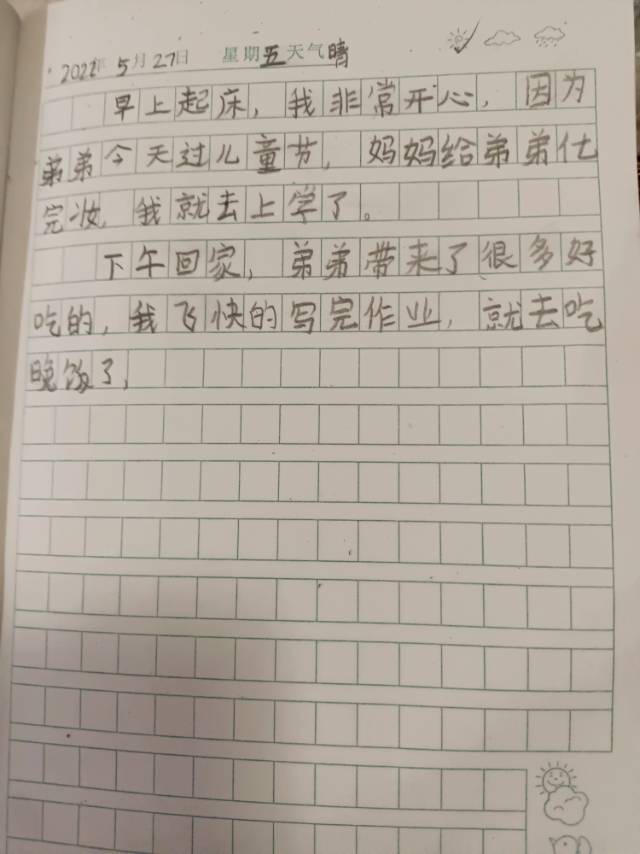 2022年5月27日 星期五天气晴
早上起床，我非常开心，因为
弟弟今天过儿童节，妈妈给弟弟化
完妆，我就去上学了。
下午回家，弟弟带来了很多好
吃的，我飞快的写完作业，就去吃
晚饭了，